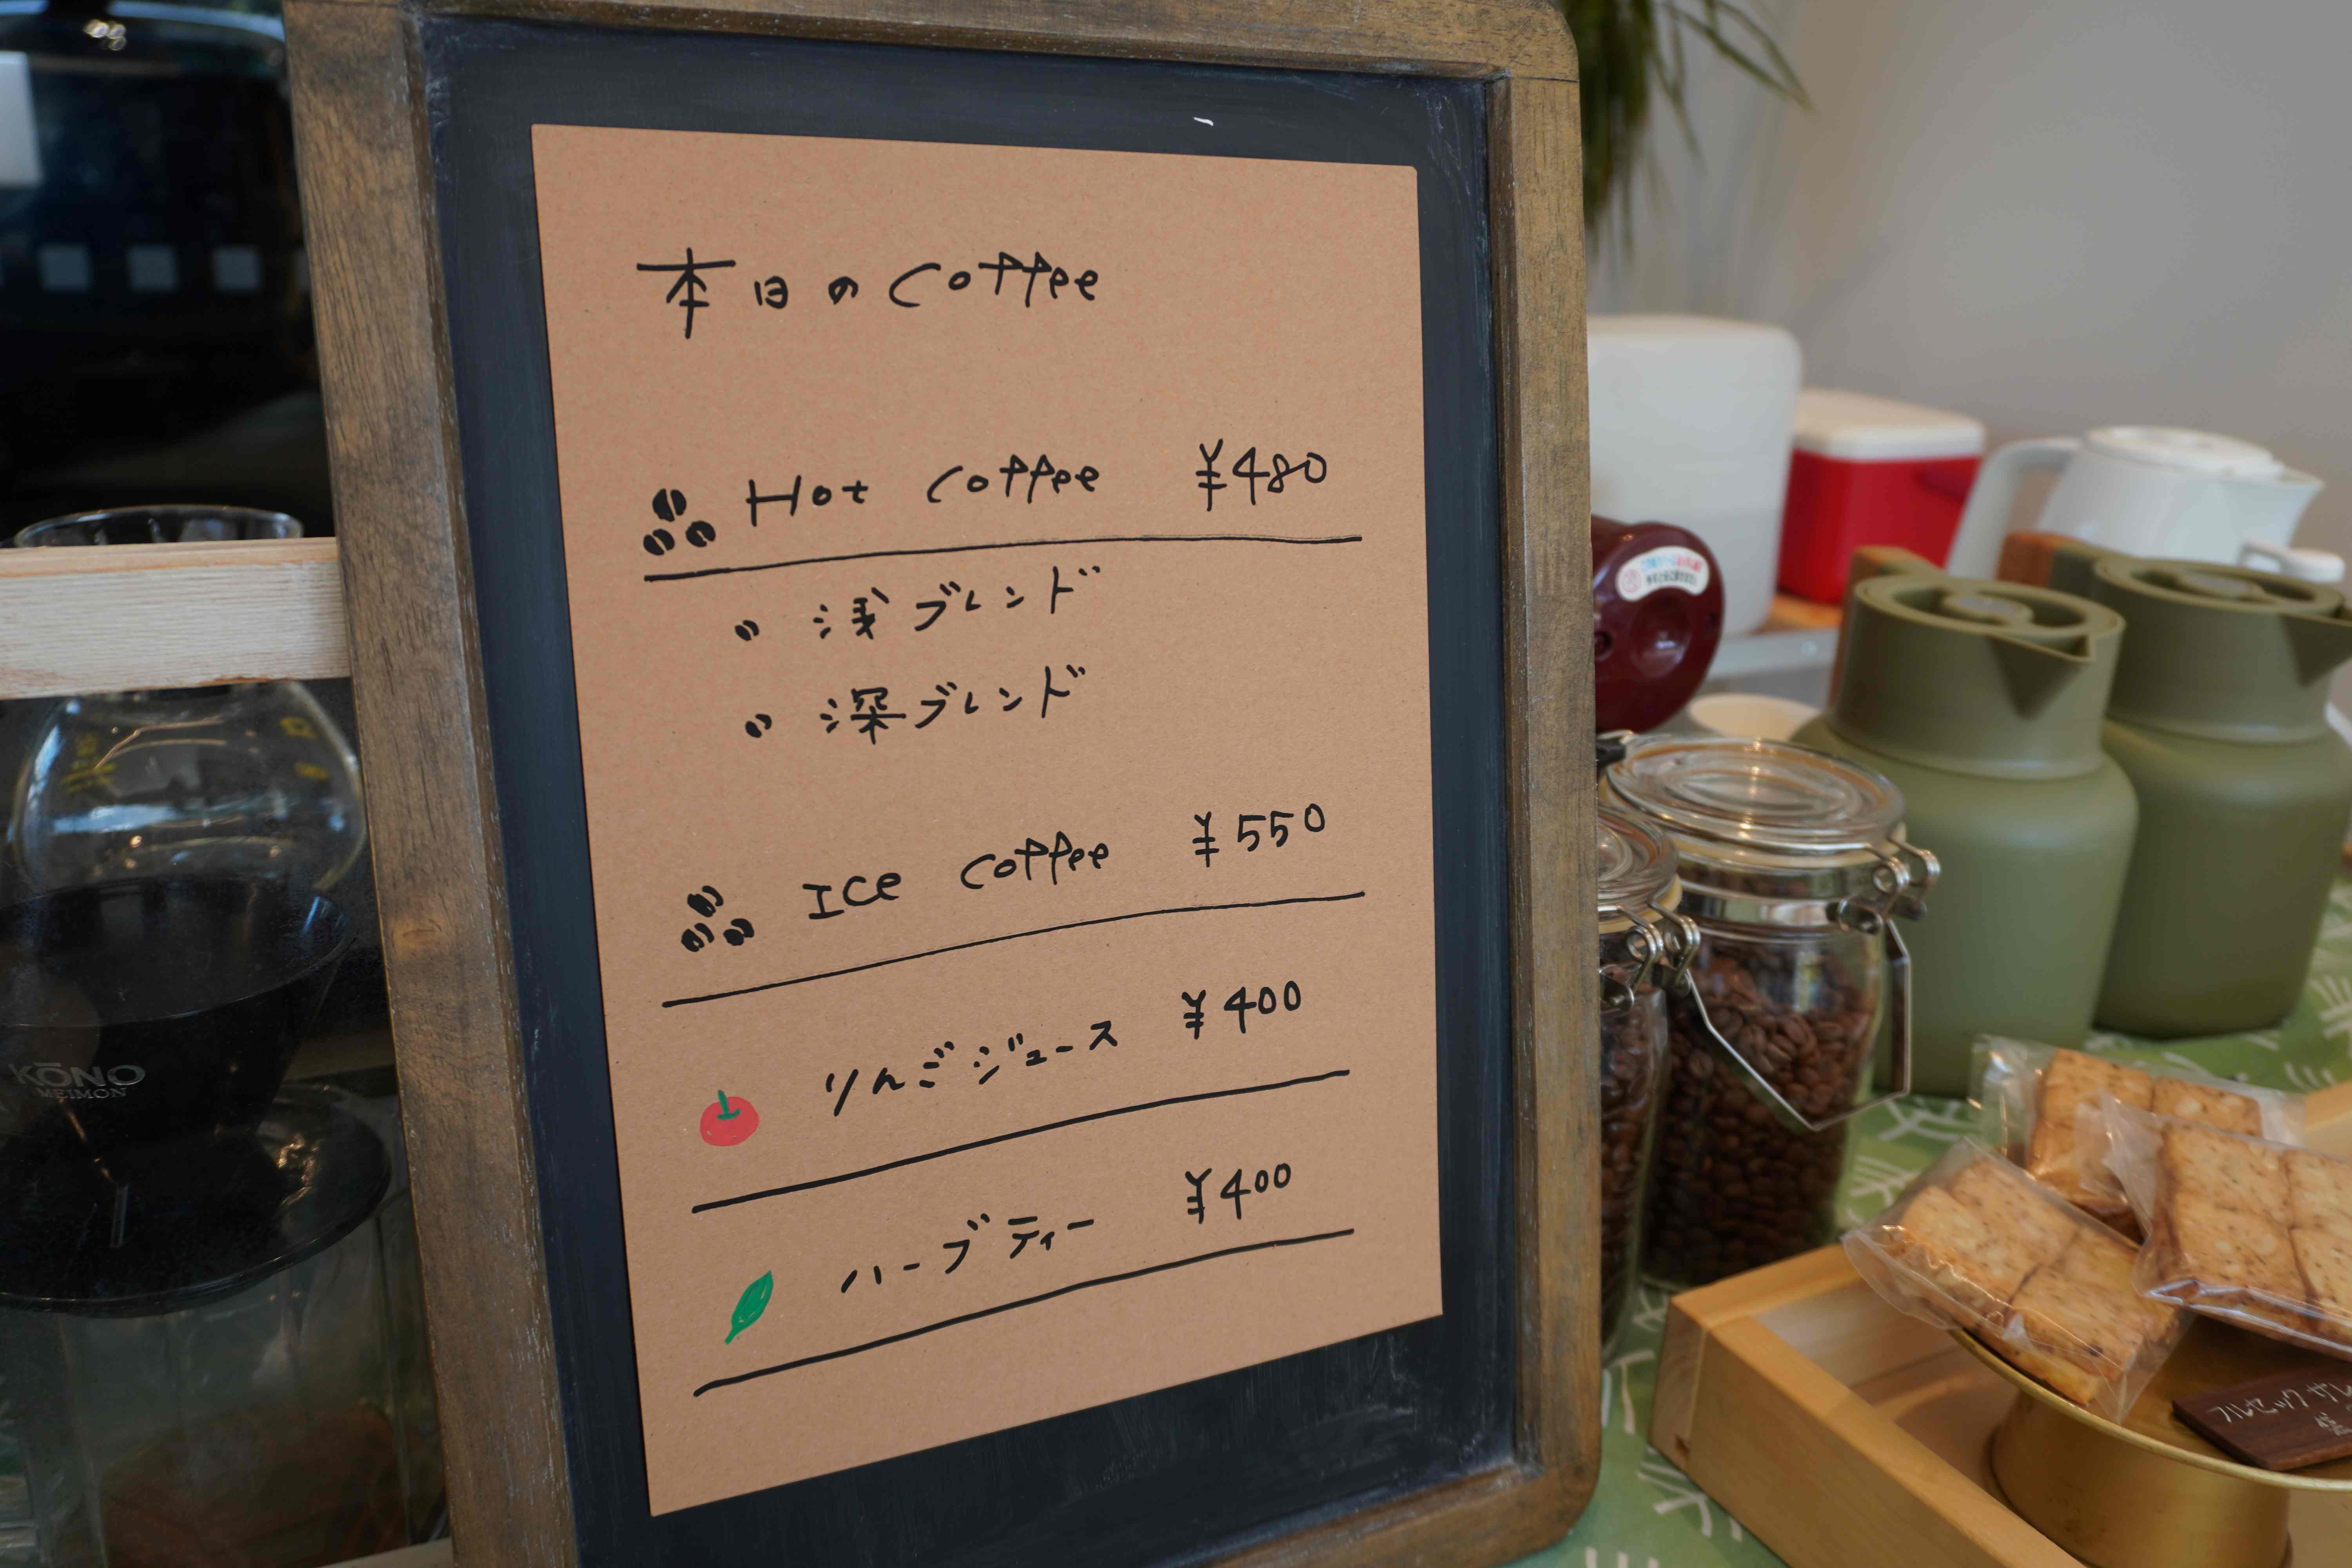 本日のCoffee
Hot Coffee ¥480
浅ブレンド
深ブレンド
ICe Coffee ¥550
りんごジュース ¥400
ハーブティー ¥400
KŌNO
MEIMON